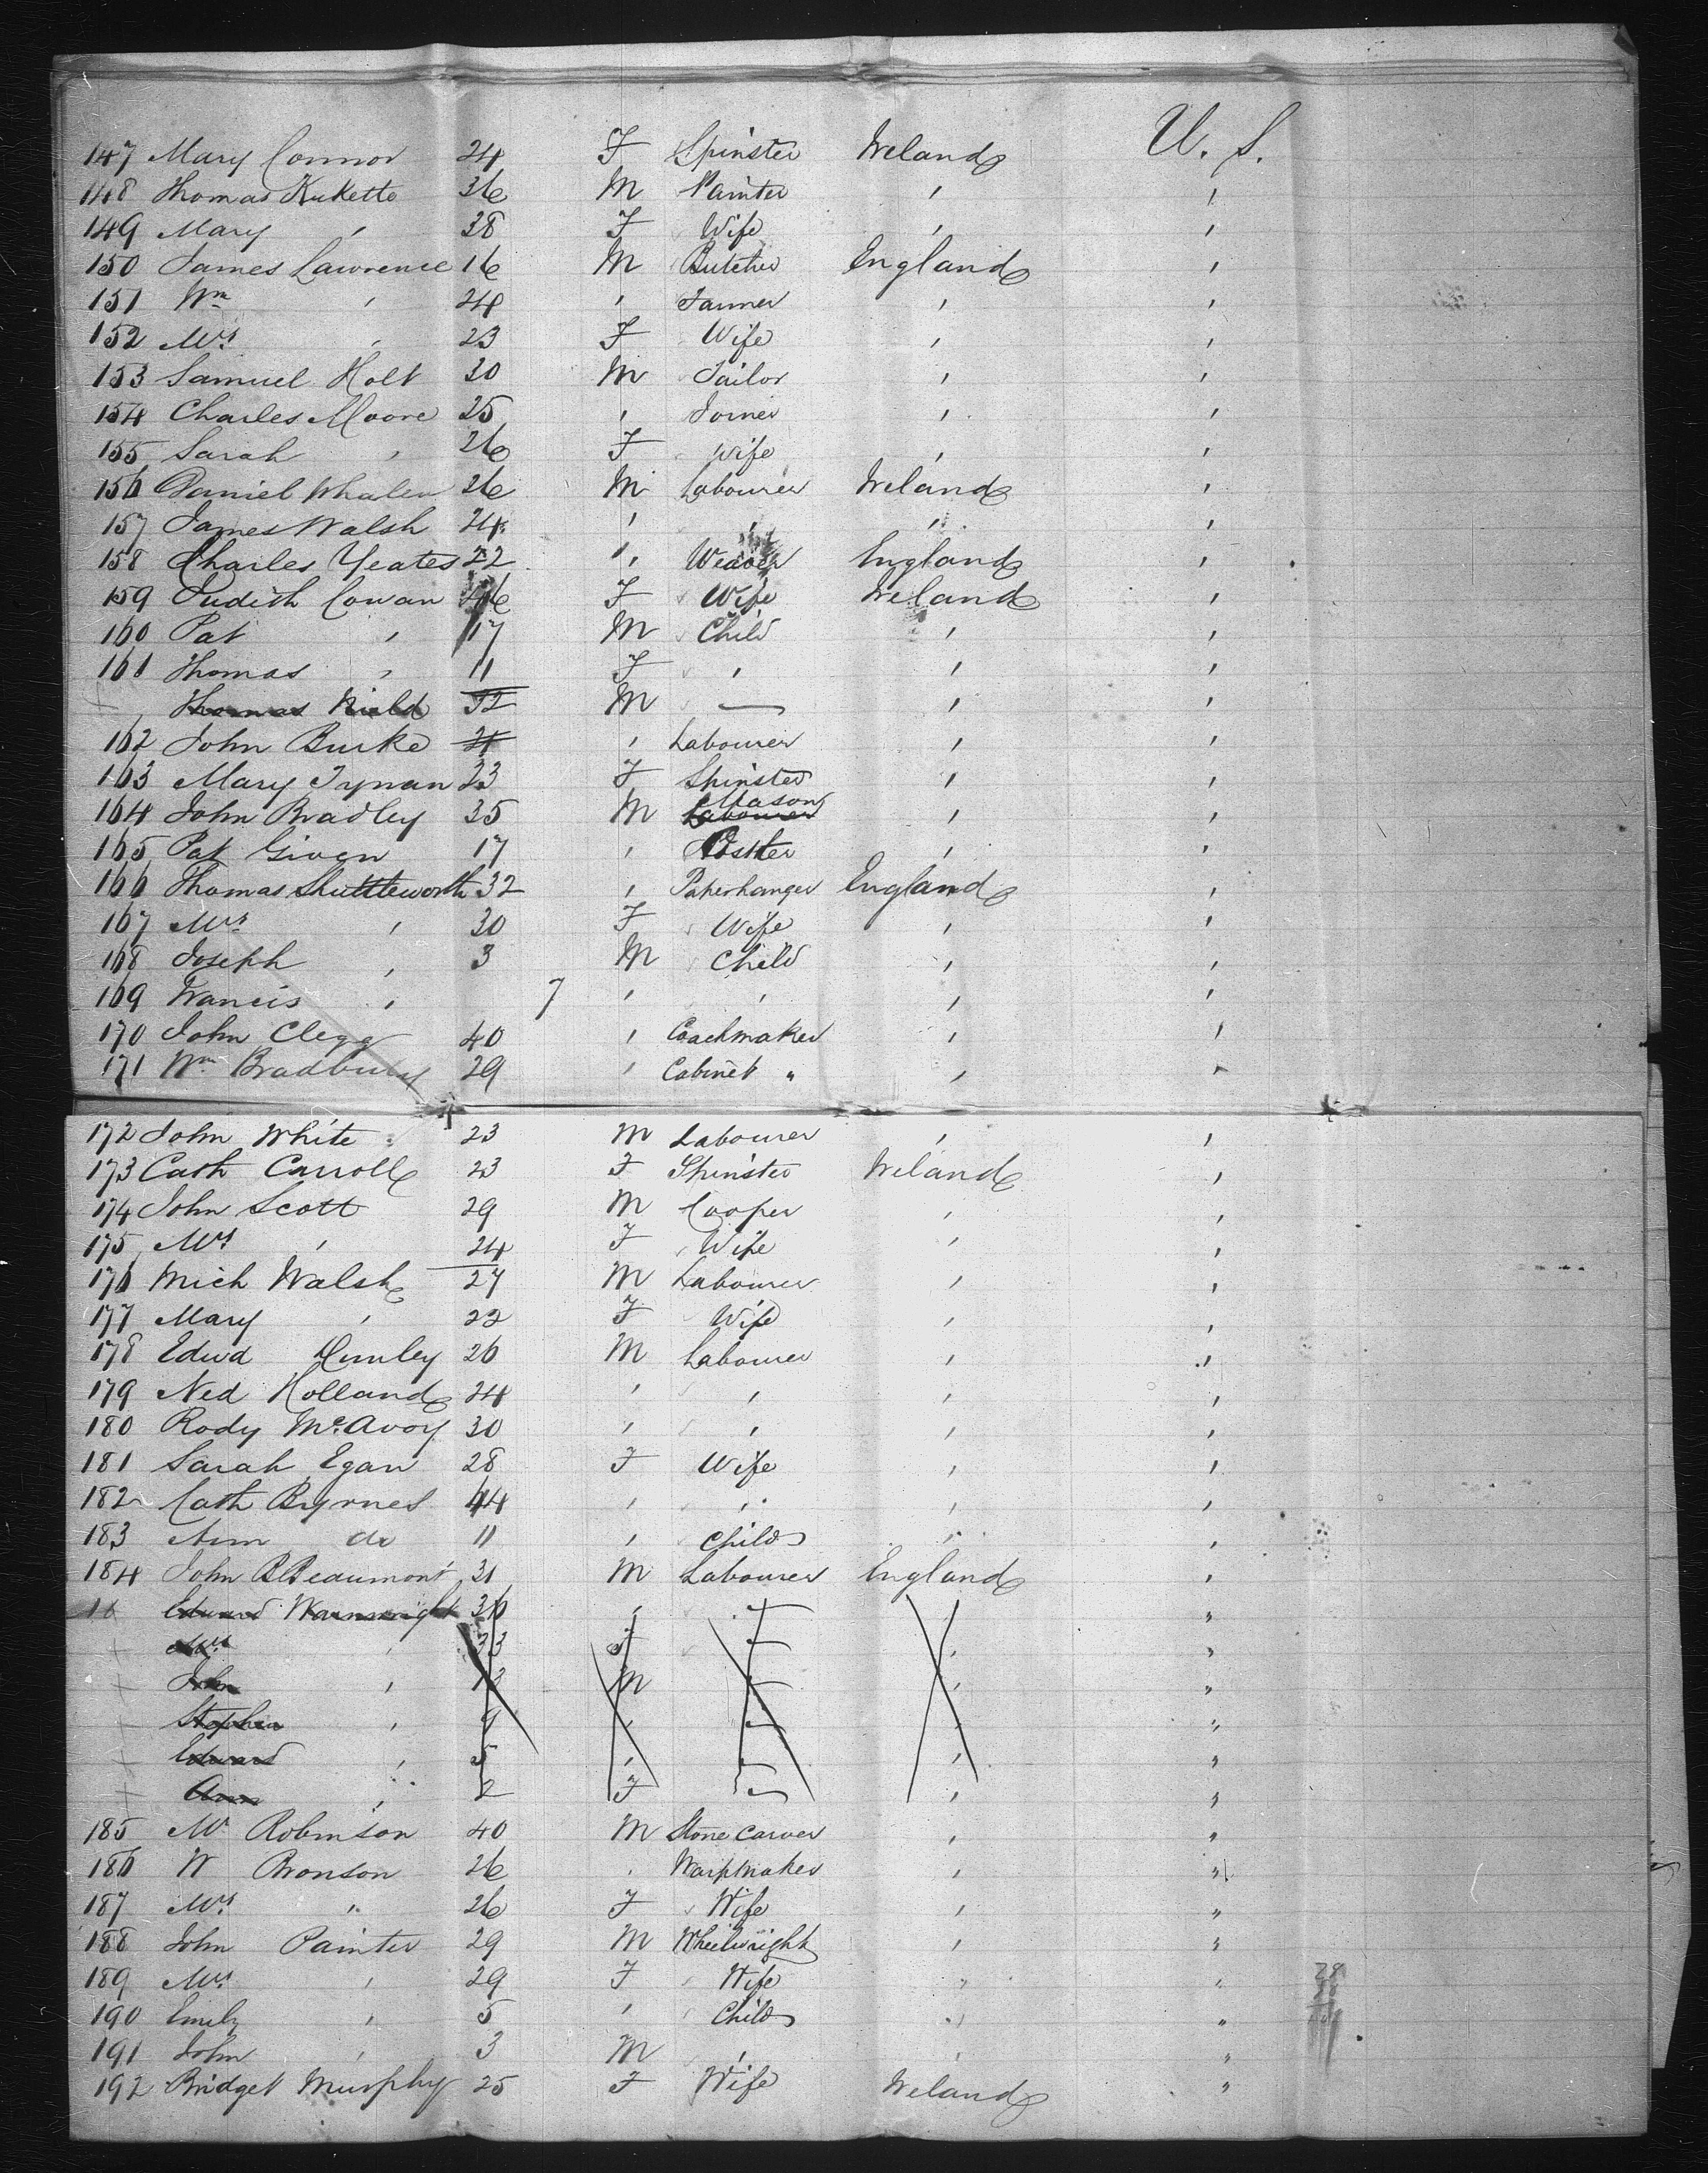 147 Mary Connor 24 F Spinster Ireland U. S.
148 Thomas 36 M Painter ' '
149 Mary ' 38 F Wife ' '
150 James Lawrence 16 M Butcher England '
151 Wm ' 24 ' Farmer ' '
152 Mrs ' 23 F Wife ' '
153 Samuel Holt 30 M Tailor ' '
154 Charles Moore 25 ' Joiner ' '
155 Sarah ' 26 F Wife ' '
156 Daniel Whalen 26 M Labourer Ireland '
157 James Walsh 24 ' ' ' '
158 Charles Yeates 22 ' Weaver England '
159 Judith Cowan F Wife Ireland '
160 Pat ' 17 M Child ' '
161 Thomas ' 11 F ' ' '
Thomas Nield 32 M — ' '
162 John Burke 21 ' Labourer ' '
163 Mary Tynan 23 F Spinster ' '
164 John Bradley 35 M Labourer Mason ' '
165 Pat Given 17 ' ' '
166 Thomas Shuttleworth 32 ' Paperhanger England '
167 Mrs ' 30 F Wife ' '
168 Joseph ' 3 M Child ' '
169 Francis ' 7 ' ' ' '
170 John Clegg 40 ' Coachmaker ' '
171 Wm Bradbury 29 ' Cabinet " ' '
172 John White 23 M Labourer ' '
173 Cath Carroll 23 F Spinster Ireland '
174 John Scott 29 M Cooper ' '
175 Mrs ' 24 F Wife ' '
176 Mich Walsh 27 M Labourer ' '
177 Mary ' 22 F Wife ' '
178 Edwd 26 M Labourer ' '
179 Ned Holland 24 ' ' ' '
180 Rody McAvoy 30 ' ' ' '
181 Sarah Egan 28 F Wife ' '
182 Cath Byrnes 44 ' ' ' '
183 Ann do 11 ' Child ' '
184 John Beaumont 31 M Labourer England '
Edward Wainwright 36 ' — ' "
Mrs ' 33 F — ' "
John ' M — ' "
Stephen ' 9 ' — ' "
Edward ' 5 ' — ' "
Ann ' 2 F — ' "
185 M Robinson 40 M Stone carver ' "
186 W Bronson 26 ' Warpmaker ' "
187 Mrs " 26 F Wife ' "
188 John Painter 29 M Wheelwright ' "
189 Mrs ' 29 F Wife " "
190 Emily ' 5 ' Child ' "
191 John ' 3 M ' ' "
192 Bridget Murphy 25 F Wife Ireland "